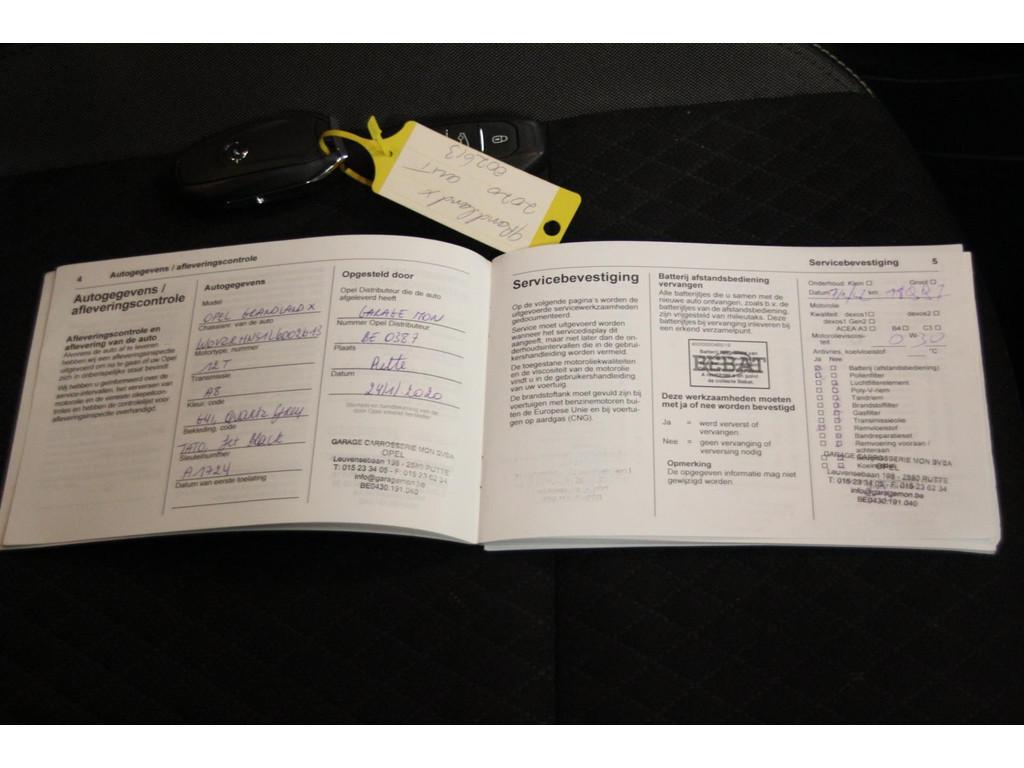 Grandland X
2020 AUT
002613
4 Autogegevens / afleveringscontrole
Autogegevens /
afleveringscontrole
Afleveringscontrole en
aflevering van de auto
Alvorens de auto af te leveren
hebben wij een afleveringsinspectie
uitgevoerd om na te gaan of uw Opel
zich in onberispelijke staat bevindt.
Wij hebben u geïnformeerd over de
service-intervallen, het verversen van
motorolie en de vereiste oliepeilcon-
troles en hebben de controlelijst voor
de afleveringsinspectie overhandigd.
Autogegevens
Model
OPEL GRANDLAND X
Chassisnr. van de auto
Motortype, nummer
1.2T
Transmissie
A8
Kleur, code
G4I, Quartz Gray
Bekleding, code
TATO, Jet Black
Sleutelnummer
A1724
Datum van eerste toelating
Opgesteld door
Opel Distributeur die de auto
afgeleverd heeft
GARAGE MON
Nummer Opel Distributeur
BE 0387
Plaats
Putte
Datum
24/1/2020
GARAGE CARROSSERIE MON BVBA
OPEL
Leuvensebaan 198 - 2580 PUTTE
T: 015 23 34 05 - F: 015 23 62 34
info@garagemon.be
BE0430.191.040
Servicebevestiging 5
Servicebevestiging
Op de volgende pagina's worden de
uitgevoerde servicewerkzaamheden
gedocumenteerd.
Service moet uitgevoerd worden
wanneer het servicedisplay dit
aangeeft, maar niet later dan de on-
derhoudsintervallen die in de gebrui-
kershandleiding worden vermeld.
De toegestane motoroliekwaliteiten
en de viscositeit van de motorolie
vindt u in de gebruikershandleiding
van uw voertuig.
De brandstoftank moet gevuld zijn bij
voertuigen met benzinemotoren bui-
ten de Europese Unie en bij voertui-
gen op aardgas (CNG).
Batterij afstandsbediening
vervangen
Alle batterijtjes die u samen met de
nieuwe auto ontvangen, zoals b.v. de
batterijtjes van de afstandsbediening,
zijn vrijgesteld van milieutaks. Deze
batterijtjes bij vervanging inleveren bij
een erkend verzamelpunt.
BEBAT
Deze werkzaamheden moeten
met ja of nee worden bevestigd
Ja = werd ververst of
vervangen
Nee = geen vervanging of
verversing nodig
Opmerking
De opgegeven informatie mag niet
gewijzigd worden.
Onderhoud: Klein Groot
Datum km
Motorolie
Kwaliteit dexos1 dexos2
dexos1 Gen2
ACEA A3 B4 C3
Motorolieviscosi-
teit 0 W- 30
Antivries, koelvloeistof °C
Ja Nee
Batterij (afstandsbediening)
Pollenfilter
Luchtfilterelement
Poly-V-riem
Tandriem
Brandstoffilter
Gasfilter
Transmissieolie
Remvloeistof
Bandreparatieset
Remvoering vooraan /
achteraan
GARAGE CARROSSERIE MON BVBA
OPEL
Leuvensebaan 198 - 2580 PUTTE
T: 015 23 34 05 - F: 015 23 62 34
info@garagemon.be
BE0430.191.040